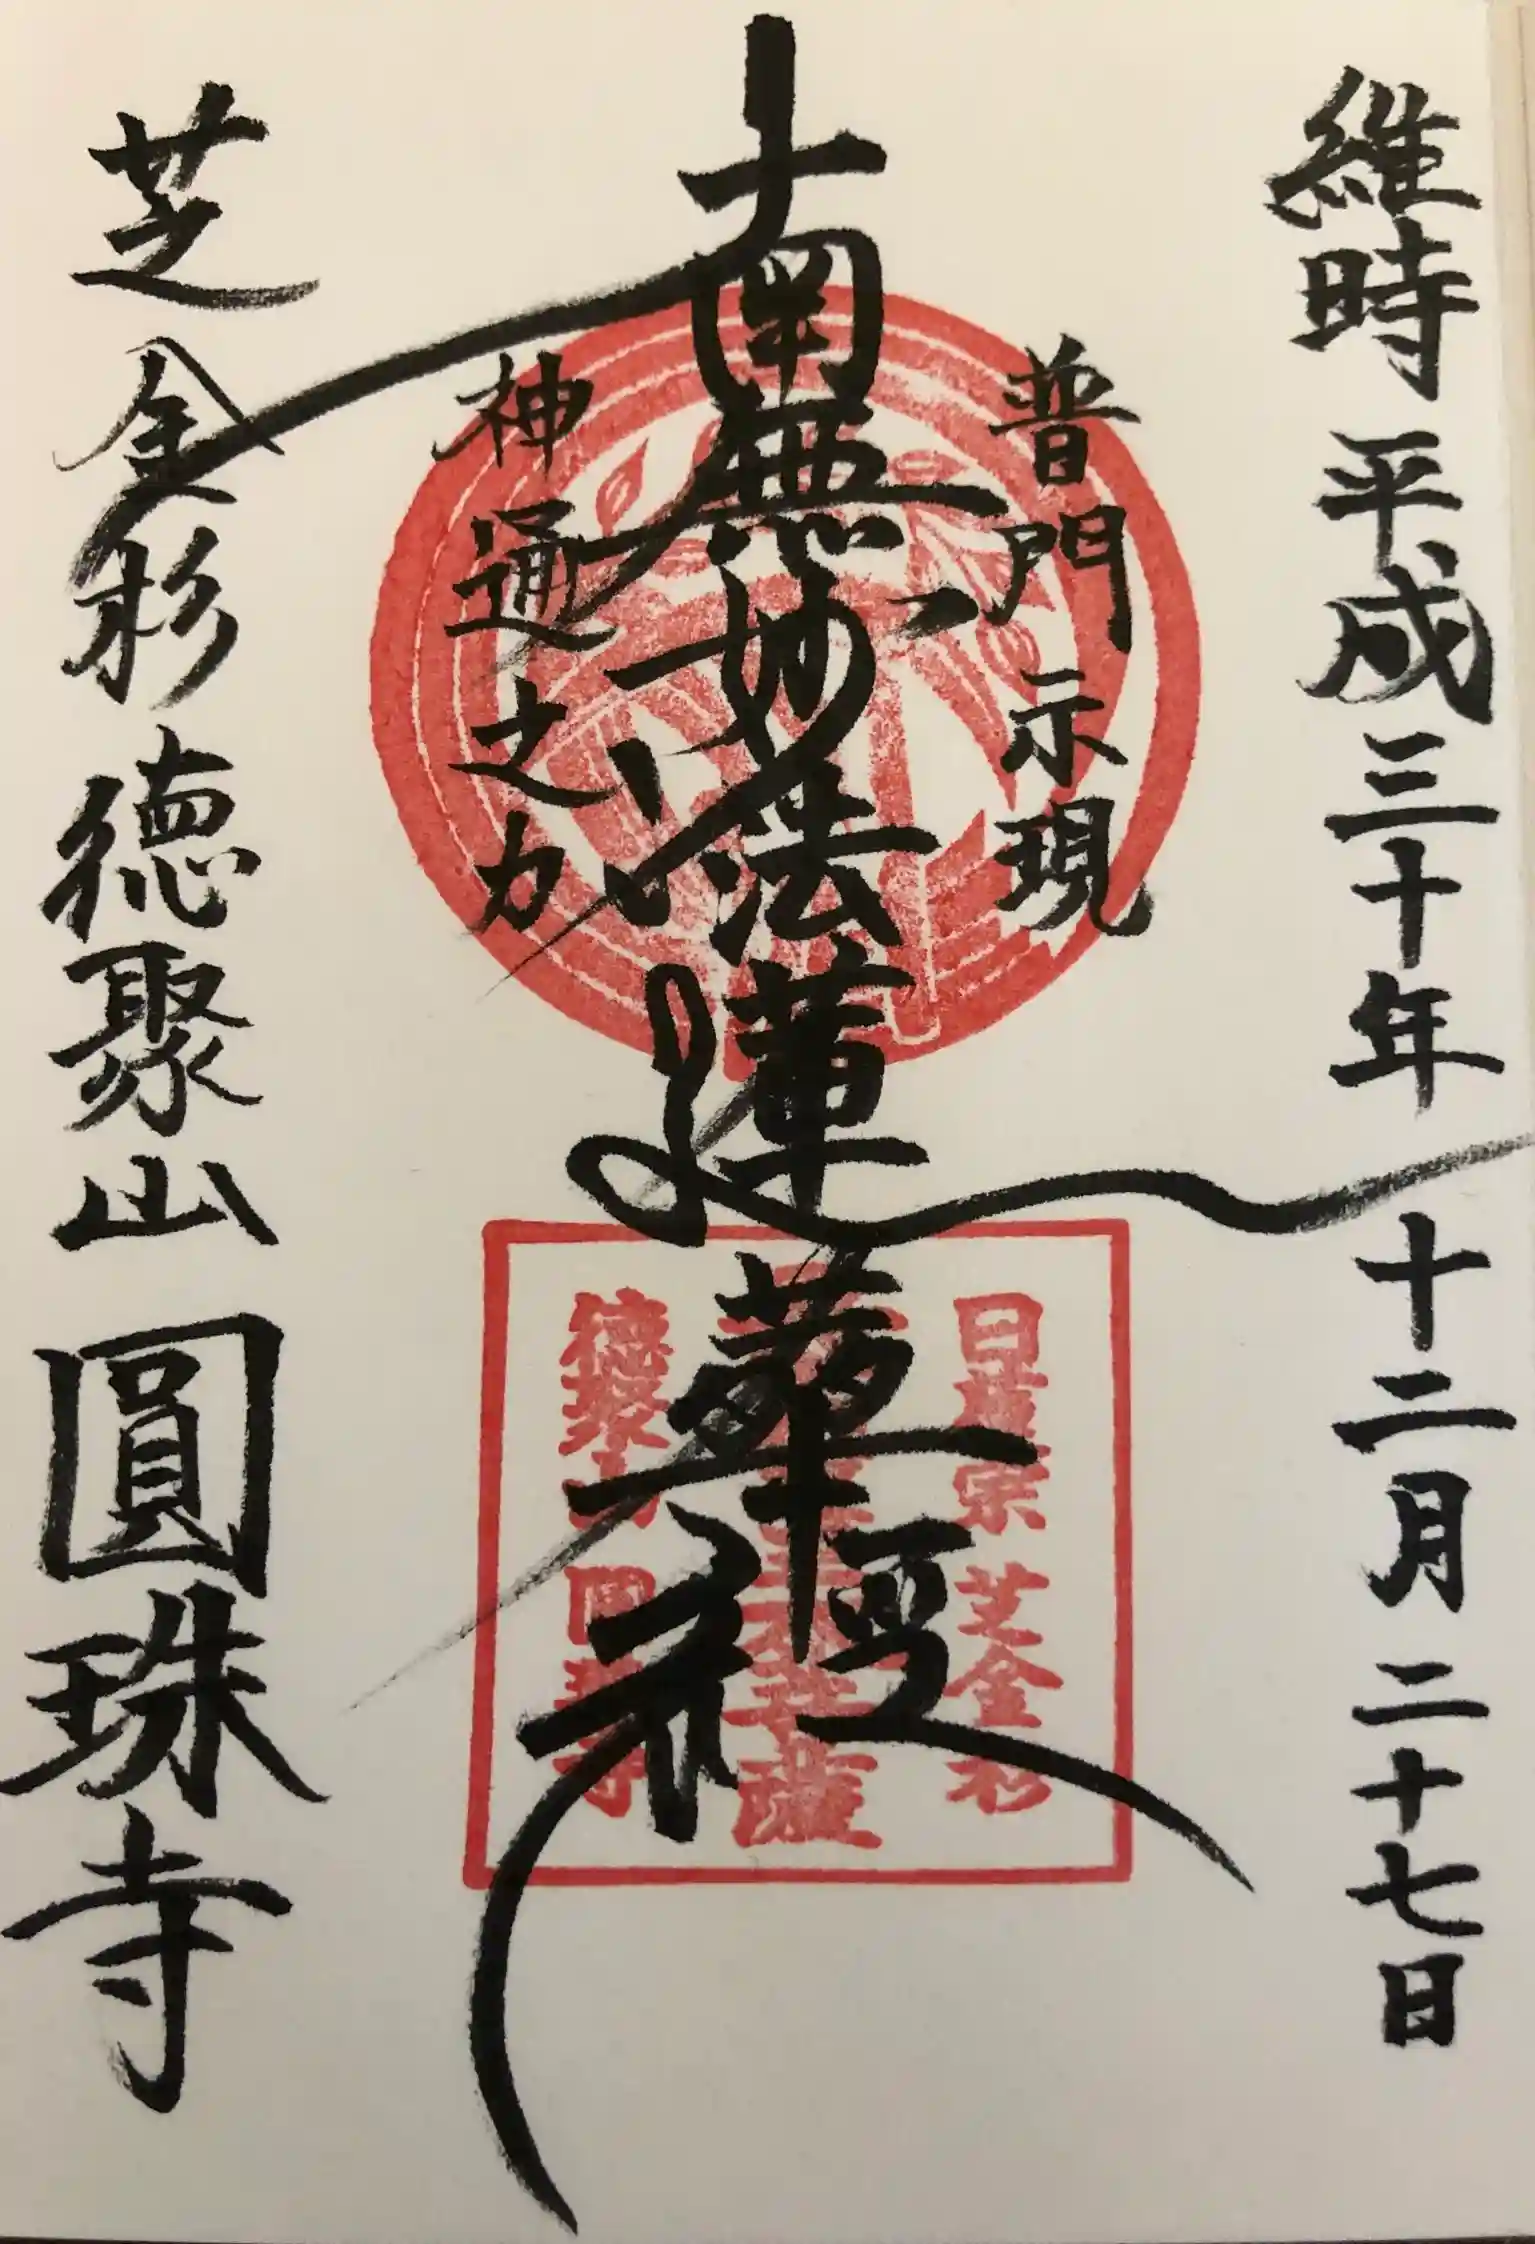 維時 平成三十年 十二月二十七日
普門示現
南無妙法蓮華経
神通之力
芝金杉 徳聚山 圓珠寺
日蓮宗 芝金杉
徳聚山 圓珠寺